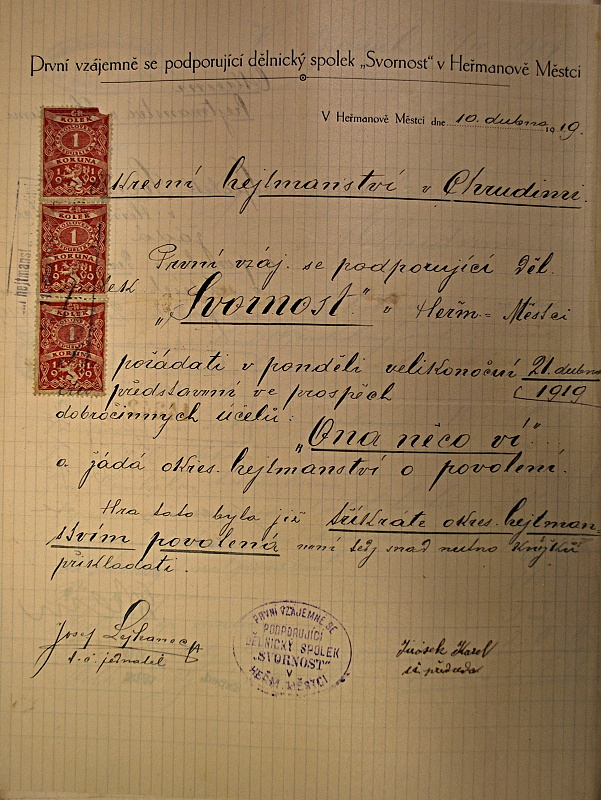 První vzájemně se podporující dělnický spolek „Svornost“ v Heřmanově Městci
V Heřmanově Městci dne 10. dubna 1919.
Okresní hejtmanství v Chrudimi.
První vzáj. se podporující Děl.
„Svornost.“ v Heřm.= Městci
pořádati v pondělí velikonoční 21. dubna
představení ve prospěch 1919
dobročinných účelů:
„Ona něco ví“
a žádá okres. hejtmanství o povolení.
Hra tato byla již tříkráte okres. hejtman-
stvím povolená není tedy snad nutno knížku
přikládati.
ČS
KOLEK
1
KORUNA
1919
ČS
KOLEK
1
KORUNA
1919
ČS
KOLEK
1
KORUNA
1919
hejtmanst
Josef
t. č. jednatel
PRVNÍ VZÁJEMNĚ SE
PODPORUJÍCÍ
DĚLNICKÝ SPOLEK
„SVORNOST“
V
HEŘM. MĚSTCI
Jirásek Karel
t. č. předseda